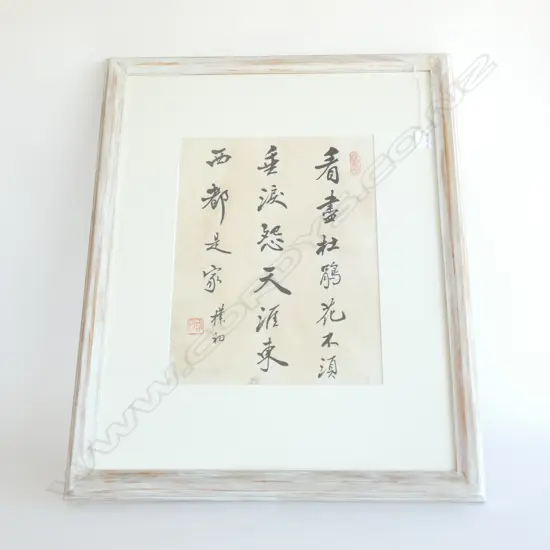 看盡杜鵑花不須
垂淚怨天涯東
西都是家
樸初
WWW.CORDYS.CO.NZ